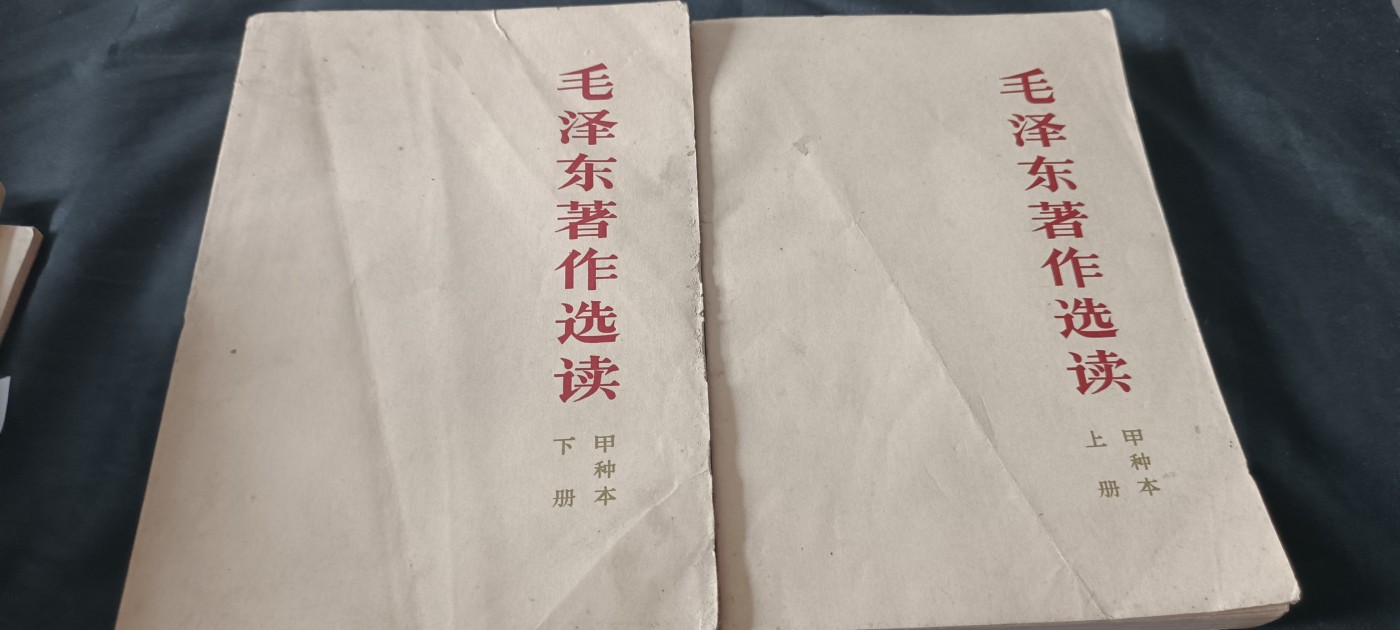 毛泽东著作选读
甲种本
下册
毛泽东著作选读
甲种本
上册